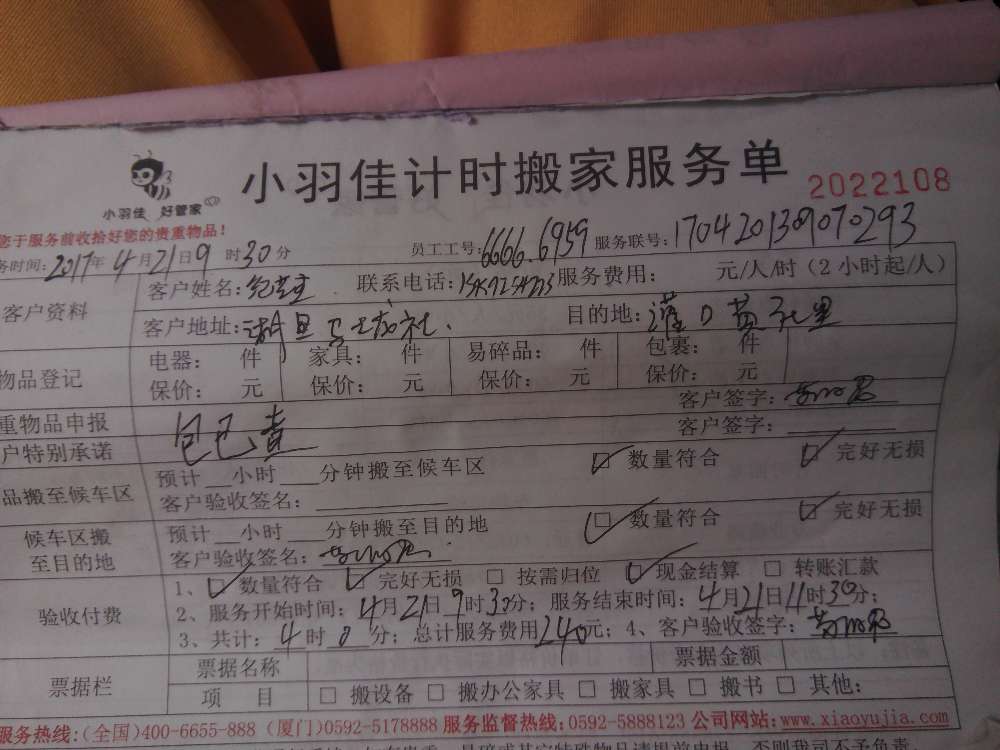 小羽佳 好管家
小羽佳计时搬家服务单
2022108
您于服务前收拾好您的贵重物品!
务时间:2017年4月21日9时30分 员工工号:6666.6959 服务联号:1704201309070293
客户资料
客户姓名: 联系电话: 服务费用: 元/人/时(2小时起/人)
客户地址: 目的地:灌口黄
物品登记
电器: 件 家具: 件 易碎品: 件 包裹: 件
保价: 元 保价: 元 保价: 元 保价: 元
重物品申报 客户签字:
户特别承诺 包已查 客户签字:
品搬至候车区
预计__小时___分钟搬至候车区 数量符合 完好无损
客户验收签名:
候车区搬至目的地
预计__小时___分钟搬至目的地 数量符合 完好无损
客户验收签名:
验收付费
1、数量符合 完好无损 按需归位 现金结算 转账汇款
2、服务开始时间:4月21日9时30分;服务结束时间:4月21日11时30分;
3、共计:4时0分;总计服务费用240元;4、客户验收签字:
票据栏
票据名称 票据金额
项 目 搬设备 搬办公家具 搬家具 搬书 其他:
服务热线:(全国)400-6655-888 (厦门)0592-5178888 服务监督热线:0592-5888123 公司网站:www.xiaoyujia.com